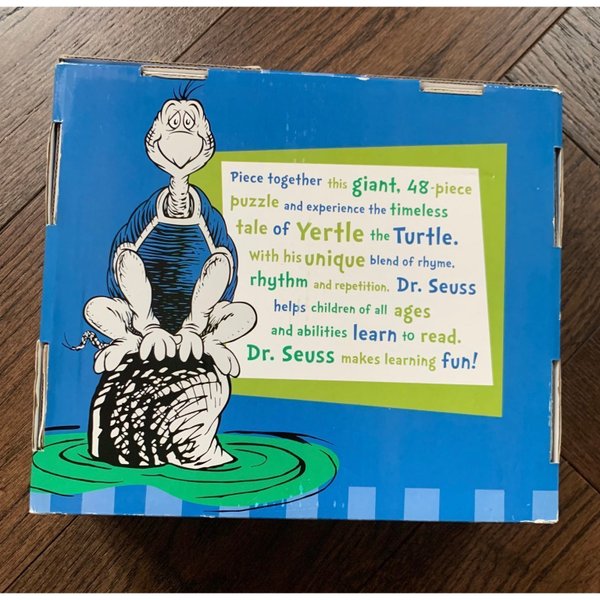 Piece together this giant, 48-piece
puzzle and experience the timeless
tale of Yertle the Turtle.
With his unique blend of rhyme,
rhythm and repetition, Dr. Seuss
helps children of all ages
and abilities learn to read.
Dr. Seuss makes learning fun!